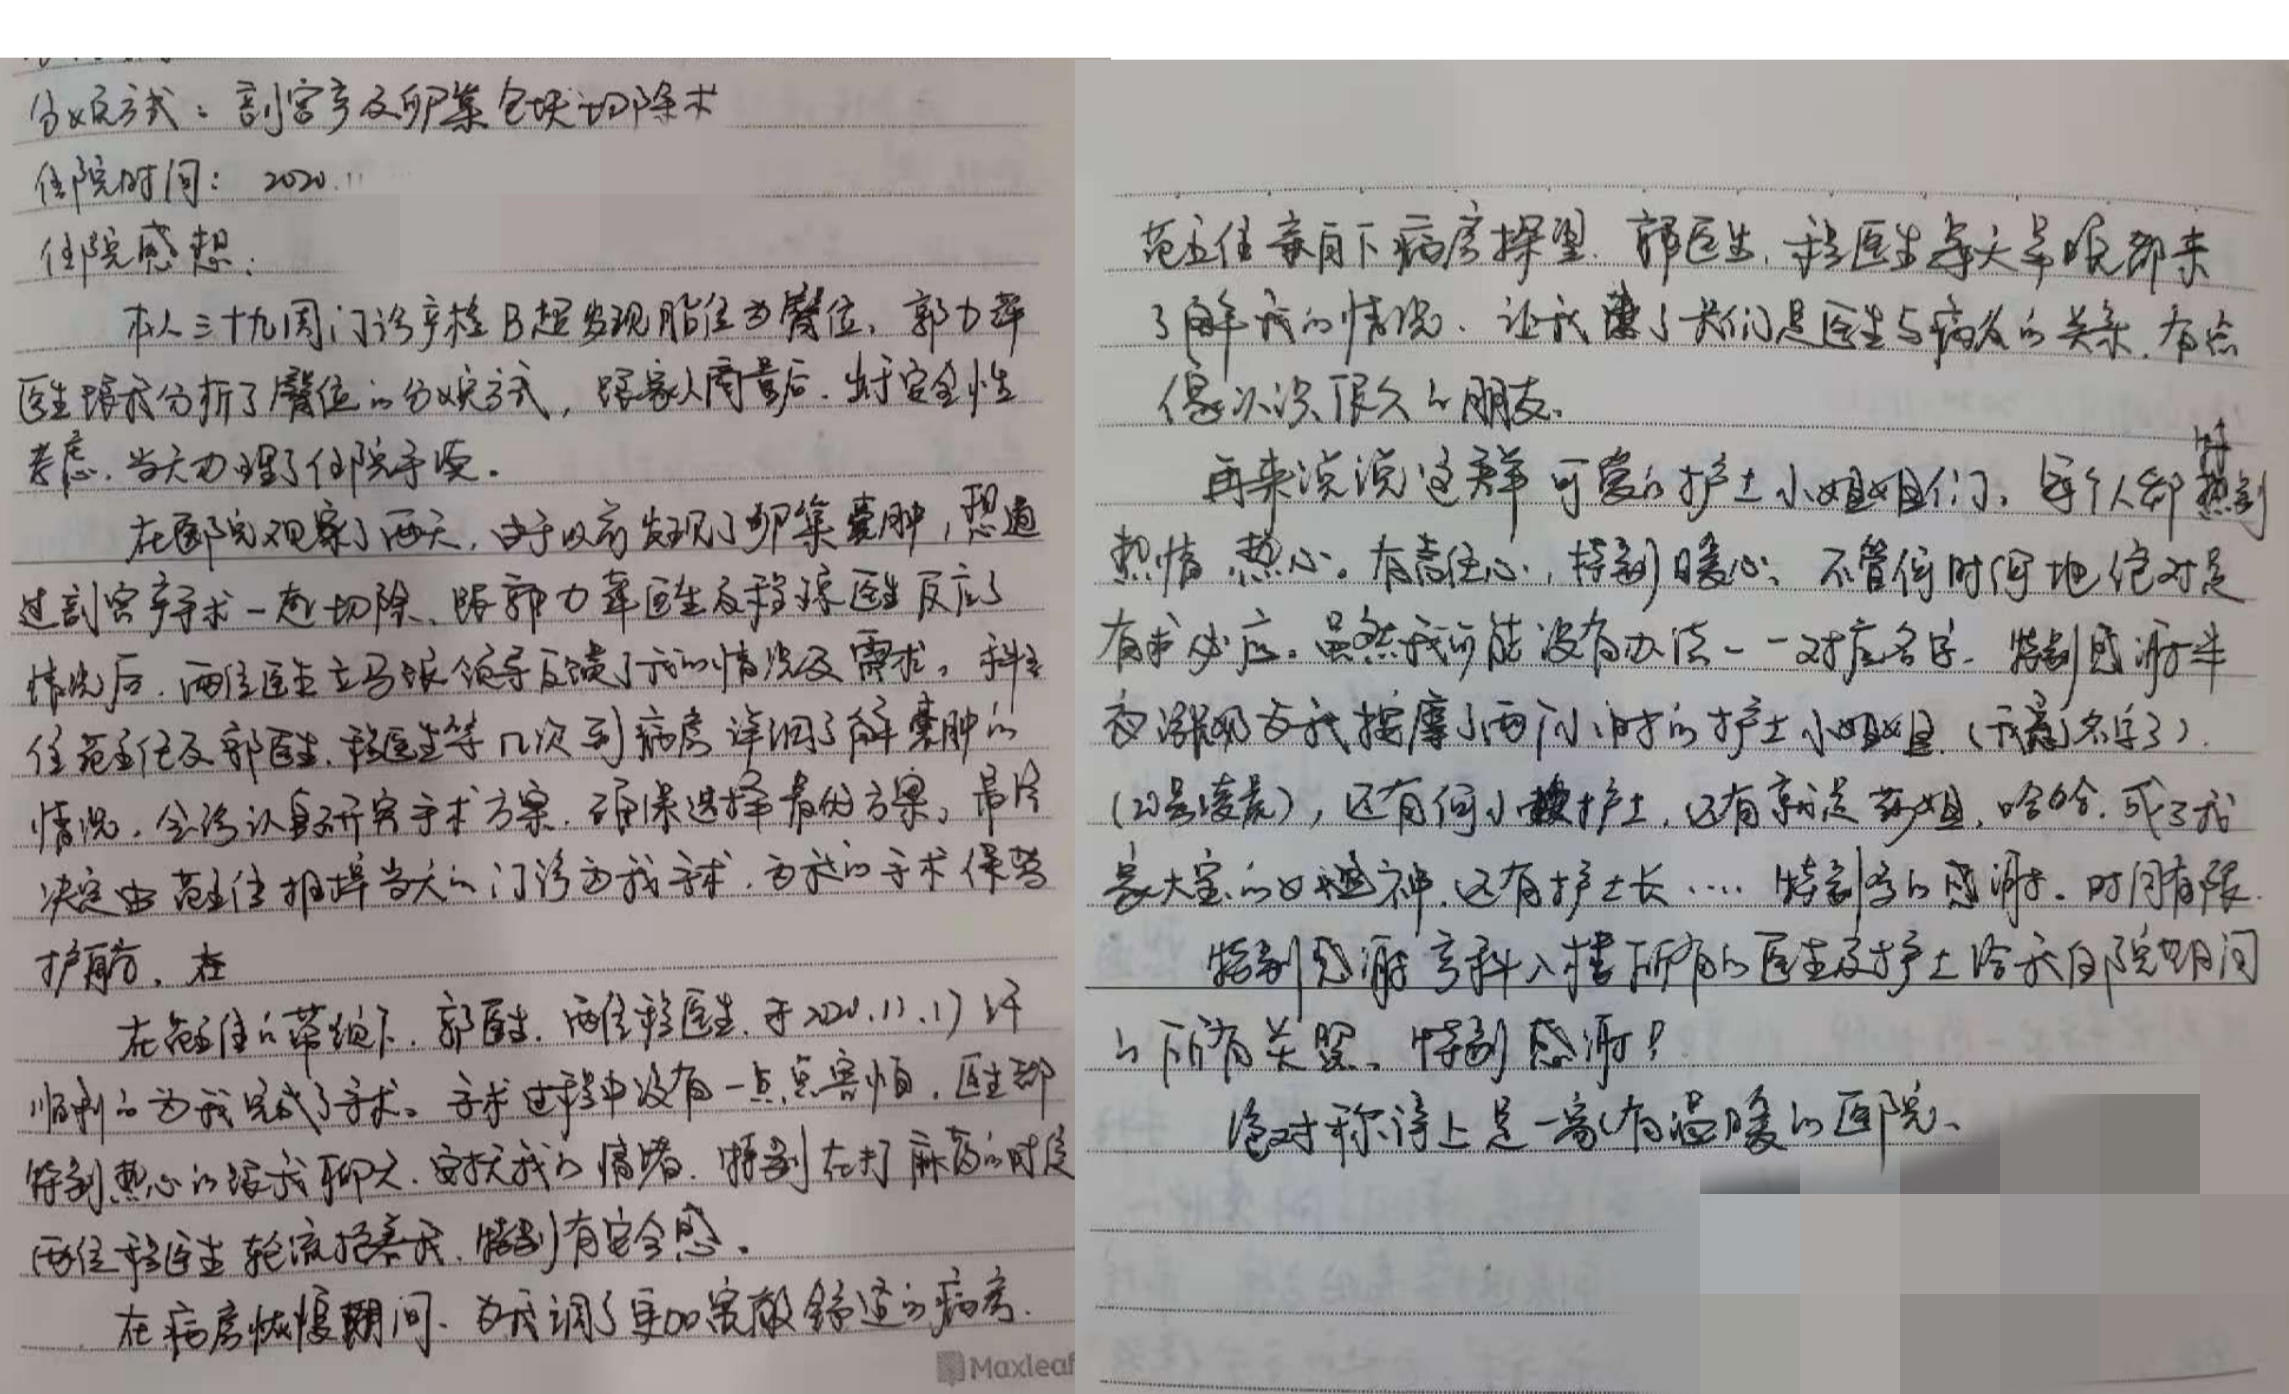 分娩方式：剖宫产及卵巢包块切除术
住院时间： 2020.11
住院感想：
本人三十九周门诊产检B超发现胎位为臀位，郭力苹
医生跟我分析了臀位的分娩方式，跟家人商量后，出于安全性
考虑，当天办理了住院手续。
在医院观察了两天，由于以前发现了卵巢囊肿，想通
过剖宫产手术一起切除，跟郭力苹医生及程琼医生反应了
情况后，两位医生立马跟领导反馈了我的情况及需求，科主
任范主任及郭医生，程医生等几次到病房详细了解囊肿的
情况，会诊认真研究手术方案，确保选择最优方案，最终
决定由范主任推掉当天的门诊为我手术，为我的手术保驾
护航，在
在范主任的带领下，郭医生，两位程医生，于2020.11.17
顺利的为我完成了手术。手术过程中没有一点点害怕，医生都
特别热心的跟我聊天，安抚我的情绪，特别在打麻药的时候
两位程医生轮流抱着我，特别有安全感。
在病房恢复期间，为我调了更加宽敞舒适的病房，
范主任亲自下病房探望，郭医生，程医生每天早晚都来
了解我的情况，让我忘了我们是医生与病友的关系，有点
像认识很久的朋友。
再来说说这群可爱的护士小姐姐们，每个人都特别
热情 热心。有责任心，特别暖心，不管何时何地绝对是
有求必应。虽然我可能没有办法一一对应名字，特别感谢半
夜涨奶为我按摩了两个小时的护士小姐姐，（我忘了名字了）
（20号凌晨），还有何小护士，还有就是 姐，哈哈，成了我
家大宝的女神，还有护士长 ···· 特别多的感谢。时间有限
特别感谢产科八楼所有的医生及护士给我住院期间
的所有关照，特别感谢！
绝对称得上是一家有温暖的医院。
Maxleaf